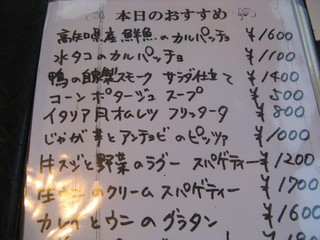 本日のおすすめ
高知県産 鮮魚のカルパッチョ ¥1600
水タコのカルパッチョ ¥1100
鴨の自家製スモーク サラダ仕立て ¥1400
コーンポタージュスープ ¥500
イタリア風オムレツ フリッタータ ¥800
じゃが芋とアンチョビのピッツァ ¥1000
牛スジと野菜のラグー スパゲティー ¥1200
生ウニのクリーム スパゲティー ¥1700
カレイとウニのグラタン ¥1600